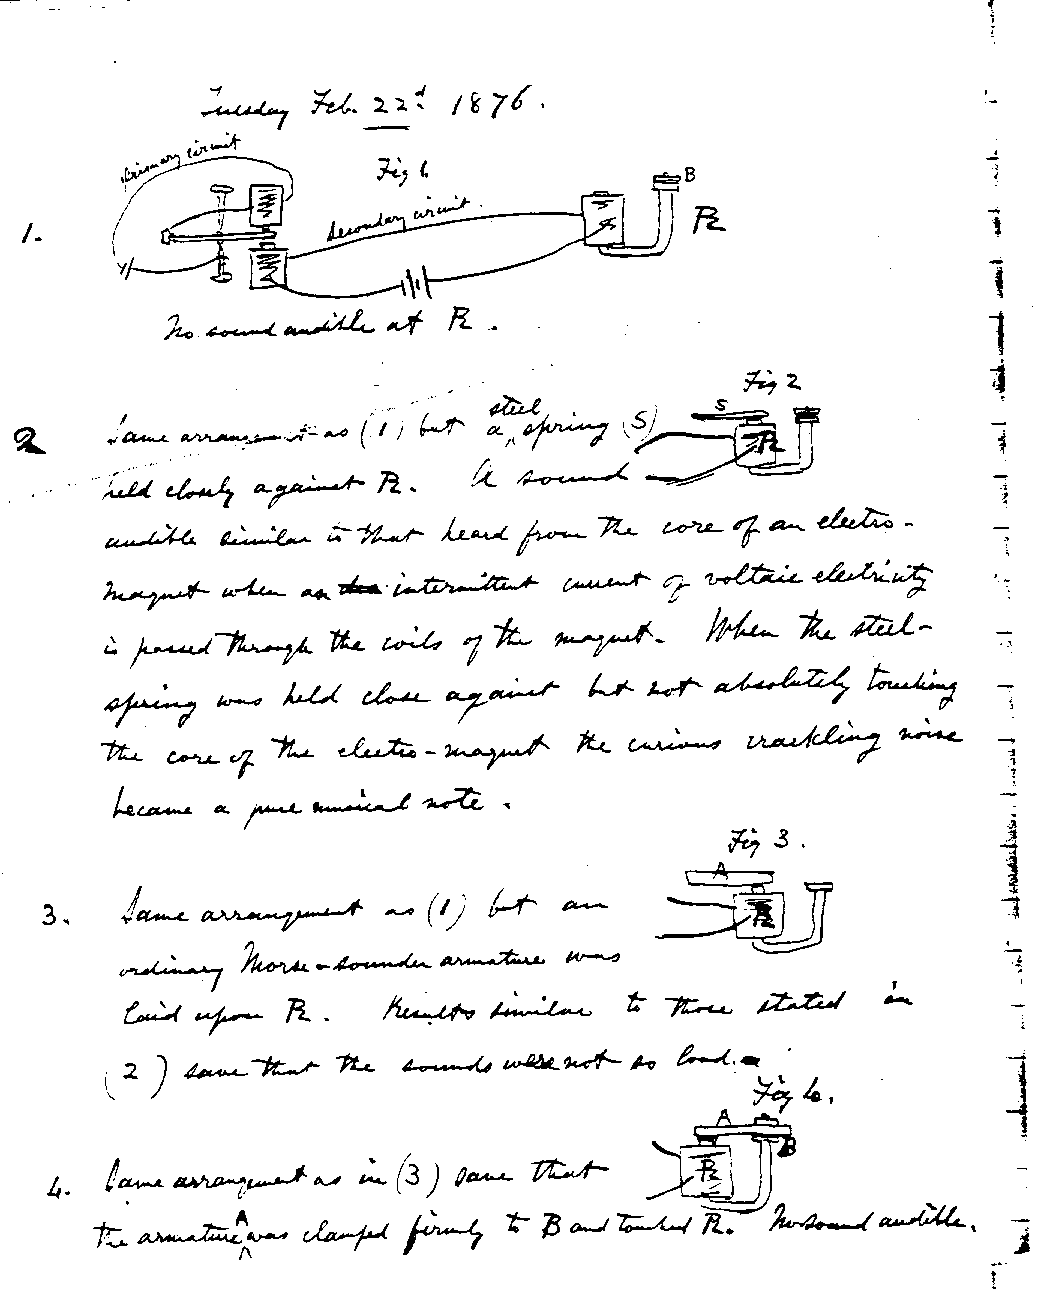 Tuesday Feb. 22d. 1876.
Primary circuit
Fig 1.
secondary circuit.
B
R
1.
No sound audible at R.
Fig 2
S
R
2 Same arrangement as (1) but a steel spring (S)
held closely against R. A sound
audible similar to that heard from the core of an electro-
magnet when an intermittent current of voltaic electricity
is passed through the coils of the magnet. When the steel-
spring was held close against but not absolutely touching
the core of the electro-magnet the curious crackling noise
became a pure musical note.
Fig 3.
A
R
3. Same arrangement as (1) but an
ordinary Morse-sounder armature was
laid upon R. Results similar to those stated in
(2) save that the sounds were not so loud.
Fig 4.
A
B
R
4. Same arrangement as in (3) save that
the armature A was clamped firmly to B and touched R. No sound audible.